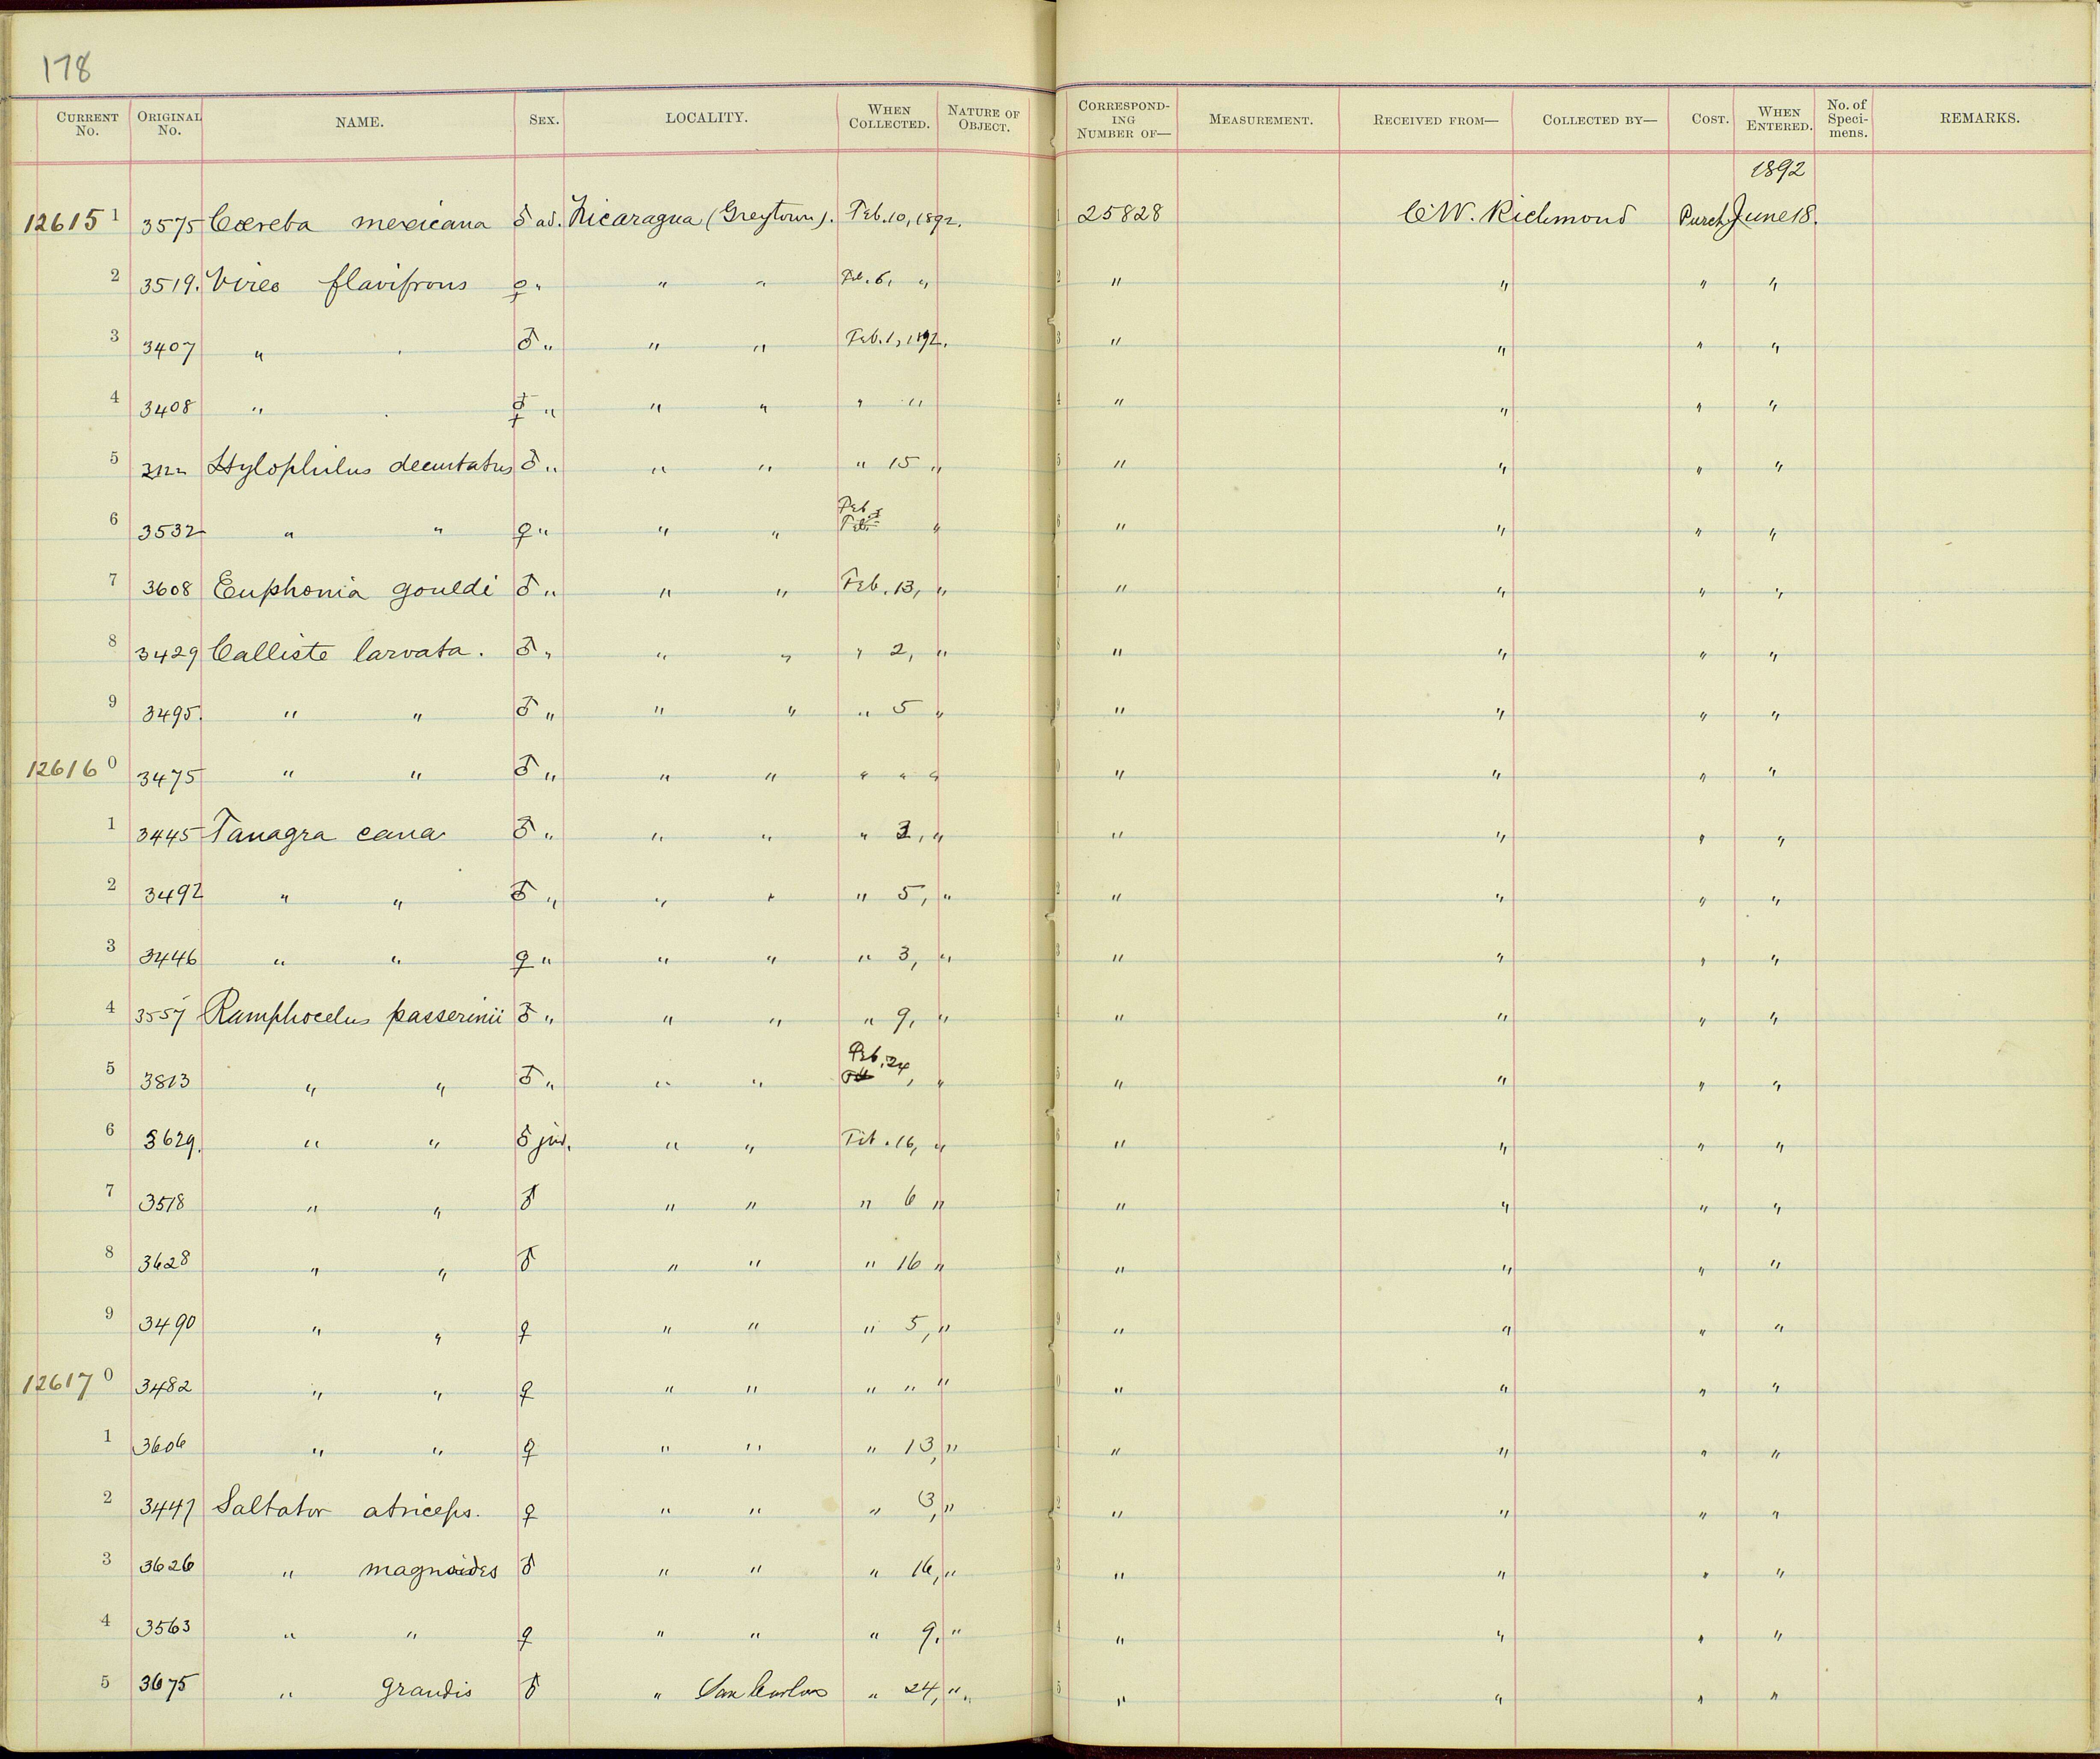 178
CURRENT No. ORIGINAL No. NAME. SEX. LOCALITY. WHEN COLLECTED. NATURE OF OBJECT. CORRESPONDING NUMBER OF— MEASUREMENT. RECEIVED FROM— COLLECTED BY— COST. WHEN ENTERED. No. of Specimens. REMARKS.
1892
12615 1 3575 Coereba mexicana ♂ ad. Nicaragua (Greytown). Feb. 10, 1892. 1 25828 C W. Richmond Purch June 18.
2 3519. Vireo flavifrons ♀ " " " Feb. 6, " 2 " " " "
3 3407 " . ♂ " " " Feb. 1, 1892. 3 " " " "
4 3408 " . " " " " " 4 " " " "
5 Hylophilus decurtatus ♂ " " " " 15 " 5 " " " "
6 3532 " " ♀ " " " Feb. " 6 " " " "
7 3608 Euphonia gouldi ♂ " " " Feb. 13, " 7 " " " "
8 3429 Calliste larvata. ♂ " " " " 2, " 8 " " " "
9 3495. " " ♂ " " " " 5 " 9 " " " "
12616 0 3475 " " ♂ " " " " " " 0 " " " "
1 3445 Tanagra cana ♂ " " " " 3, " 1 " " " "
2 3492 " " ♂ " " " " 5, " 2 " " " "
3 3446 " " ♀ " " " " 3, " 3 " " " "
4 3557 Ramphocelus passerinii ♂ " " " " 9, " 4 " " " "
5 3813 " " ♂ " " " Feb. 24, " 5 " " " "
6 3629. " " ♂ juv. " " Feb. 16, " 6 " " " "
7 3518 " " ♂ " " " 6 " 7 " " " "
8 3628 " " ♂ " " " 16 " 8 " " " "
9 3490 " " ♀ " " " 5, " 9 " " " "
12617 0 3482 " " ♀ " " " " " 0 " " " "
1 3606 " " ♀ " " " 13, " 1 " " " "
2 3447 Saltator atriceps. ♀ " " " 3, " 2 " " " "
3 3626 " magnoides ♂ " " " 16, " 3 " " " "
4 3563 " " ♀ " " " 9, " 4 " " " "
5 3675 " grandis ♂ " San Carlos " 24, " " 5 " " " "